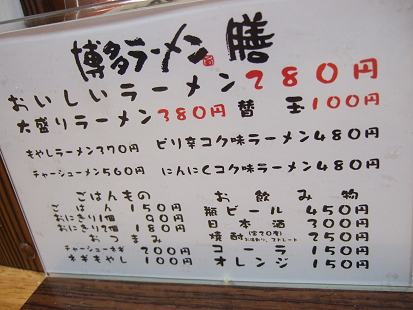 博多ラーメン 膳
おいしいラーメン280円
大盛りラーメン380円 替玉100円
もやしラーメン370円 ピリ辛コク味ラーメン480円
チャーシューメン560円 にんにくコク味ラーメン480円
ごはんもの
ごはん 150円
おにぎり1個 90円
おにぎり2個 180円
おつまみ
チャーシューネギ 200円
ネギもやし 100円
お飲み物
瓶ビール 450円
日本酒 300円
焼酎 250円
コーラ 150円
オレンジ 150円